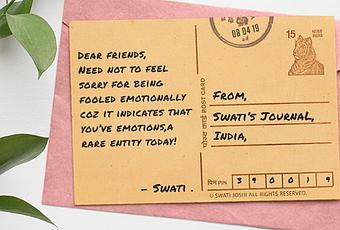 DEAR FRIENDS,
NEED NOT TO FEEL
SORRY FOR BEING
FOOLED EMOTIONALLY
COZ IT INDICATES THAT
YOU'VE EMOTIONS,A
RARE ENTITY TODAY!
- SWATI .
08 04 19
15
भारत
INDIA
POST CARD
FROM,
SWATI'S JOURNAL,
INDIA,
पिन PIN 3 9 0 0 1 9
© SWATI JOSHI ALL RIGHTS RESERVED.